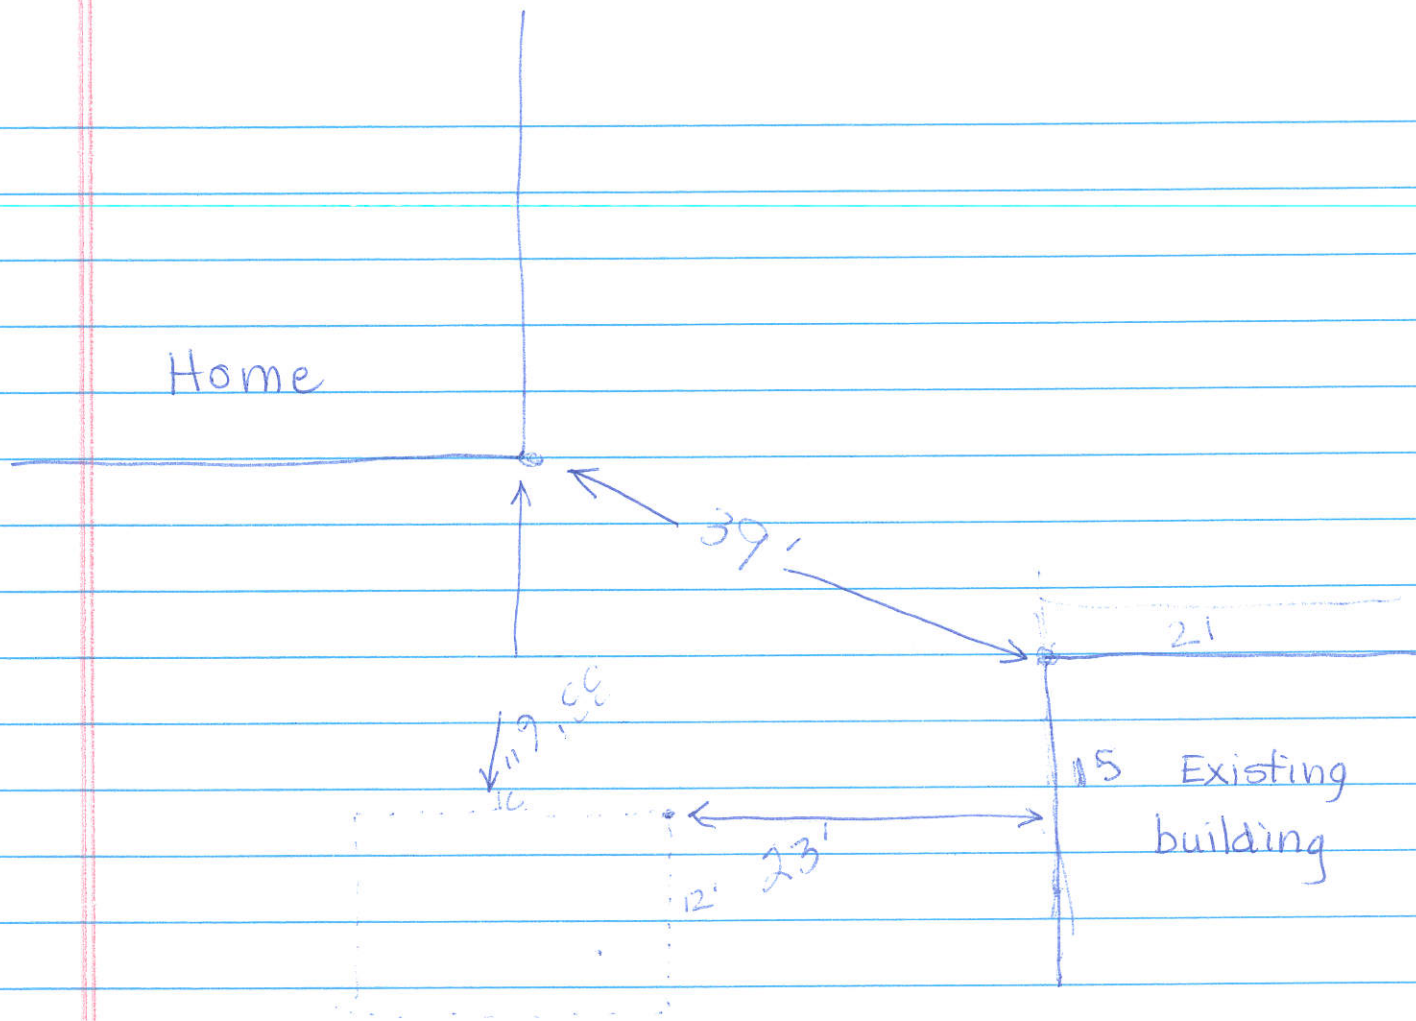 Home
39'
21
15 Existing
building
23'
12'